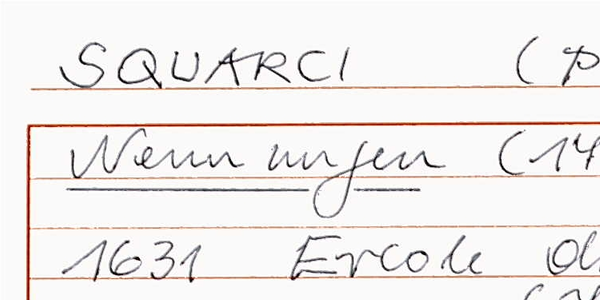 SQUARCI (P
Nennungen (14
1631 Ercole